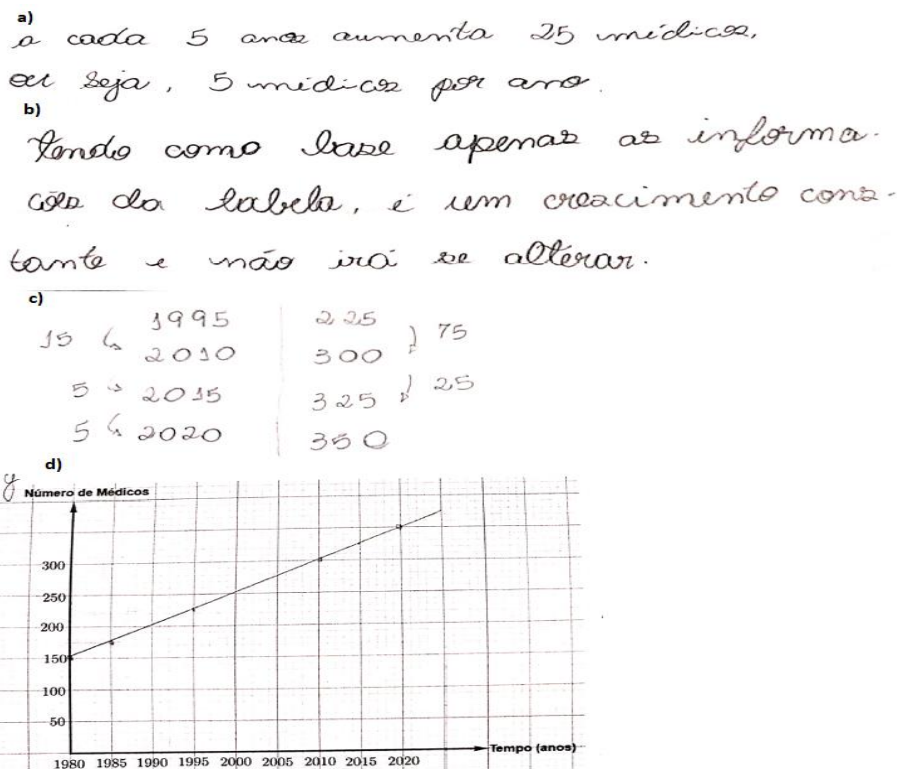 a)
a cada 5 anos aumenta 25 médicos,
ou seja, 5 médicos por ano.
b)
Tendo como base apenas as informa-
ções da tabela, é um crescimento cons-
tante e não irá se alterar.
c)
1995 225
15 75
2010 300
5 2015 325 25
5 2020 350
d)
y Número de Médicos
300
250
200
150
100
50
Tempo (anos)
1980 1985 1990 1995 2000 2005 2010 2015 2020